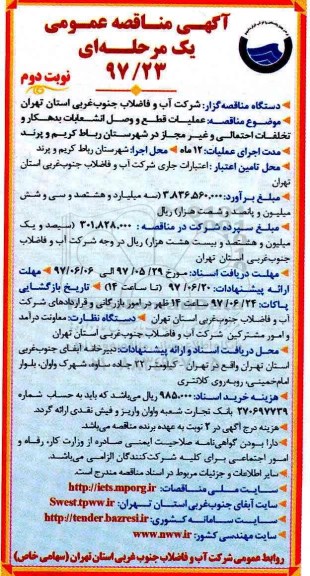 آگهی مناقصه عمومی
یک مرحله‌ای
۹۷/۲۳
نوبت دوم
دستگاه مناقصه‌گزار: شرکت آب و فاضلاب جنوب‌غربی استان تهران
موضوع مناقصه: عملیات قطع و وصل انشعابات بدهکار و
تخلفات احتمالی و غیر مجاز در شهرستان رباط کریم و پرند
مدت اجرای عملیات: ۱۲ ماه محل اجرا: شهرستان رباط کریم و پرند
محل تامین اعتبار: اعتبارات جاری شرکت آب و فاضلاب جنوب‌غربی استان
تهران
مبلغ برآورد: ۳.۸۳۶.۵۶۰.۰۰۰ (سه میلیارد و هشتصد و سی و شش
میلیون و پانصد و شصت هزار) ریال
مبلغ سپرده شرکت در مناقصه: ۳۰۱.۸۲۸.۰۰۰ (سیصد و یک
میلیون و هشتصد و بیست هشت هزار) ریال در وجه شرکت آب و فاضلاب
جنوب‌غربی استان تهران
مهلت دریافت اسناد: مورخ ۹۷/۰۵/۲۹ الی ۹۷/۰۶/۰۶ مهلت
ارائه پیشنهادات: ۹۷/۰۶/۲۰ (تا ساعت ۱۴) تاریخ بازگشایی
پاکات: ۹۷/۰۶/۲۴ ساعت ۱۴ ظهر در امور بازرگانی و قراردادهای شرکت
آب و فاضلاب جنوب‌غربی استان تهران دستگاه نظارت: معاونت درآمد
و امور مشترکین شرکت آب و فاضلاب جنوب غربی استان تهران
محل دریافت اسناد و ارائه پیشنهادات: دبیرخانه آبفای جنوب‌غربی
استان تهران واقع در تهران - کیلومتر ۲۲ جاده ساوه، شهرک واوان، بلوار
امام‌خمینی، روبه‌روی کلانتری
هزینه خرید اسناد: ۹۸۵.۰۰۰ ریال می‌باشد که باید به حساب شماره
۲۷۰۶۹۷۷۳۹ بانک تجارت شعبه واوان واریز و فیش نقدی ارائه گردد.
هزینه درج آگهی در ۲ نوبت به عهده برنده مناقصه می‌باشد.
دارا بودن گواهی‌نامه صلاحیت ایمنی صادره از وزارت کار، رفاه و
امور اجتماعی برای کلیه شرکت‌کنندگان الزامی می‌باشد.
سایر اطلاعات و جزئیات مربوط در اسناد مناقصه مندرج است.
سایت ملی مناقصات: http://iets.mporg.ir
سایت آبفای جنوب‌غربی استان تهران: Swest.tpww.ir
سایت سامانه کشوری: http://tender.bazresi.ir
سایت مهندسی کشور: www.nww.ir
روابط عمومی شرکت آب و فاضلاب جنوب غربی استان تهران (سهامی خاص)